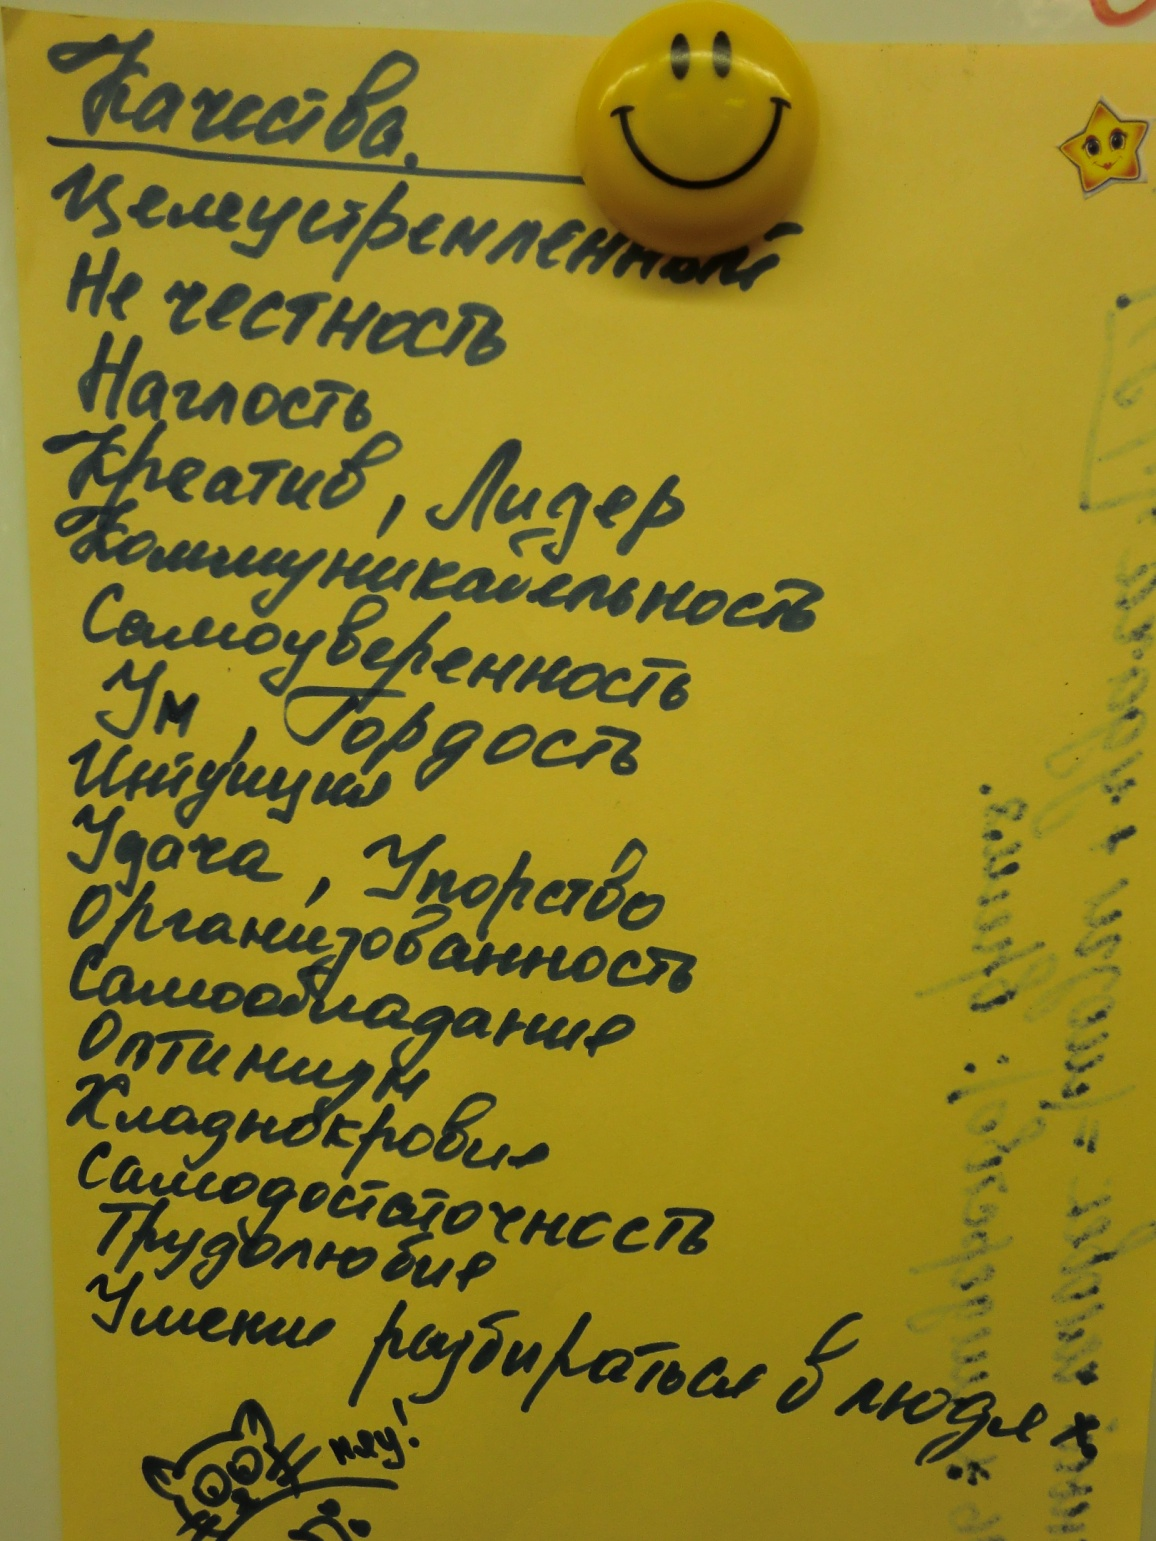 Качества.
Целеустремленный
Не честность
Наглость
Креатив, Лидер
Коммуникабельность
Самоуверенность
Ум, Гордость
Интуиция
Удача, Упорство
Организованность
Самообладание
Оптимизм
Хладнокровие
Самодостаточность
Трудолюбие
Умение разбираться в людях
мяу!